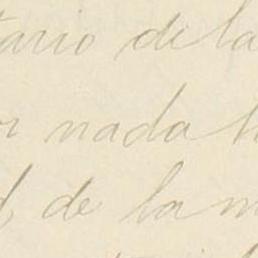 tario de la
or nada h
d, de la m